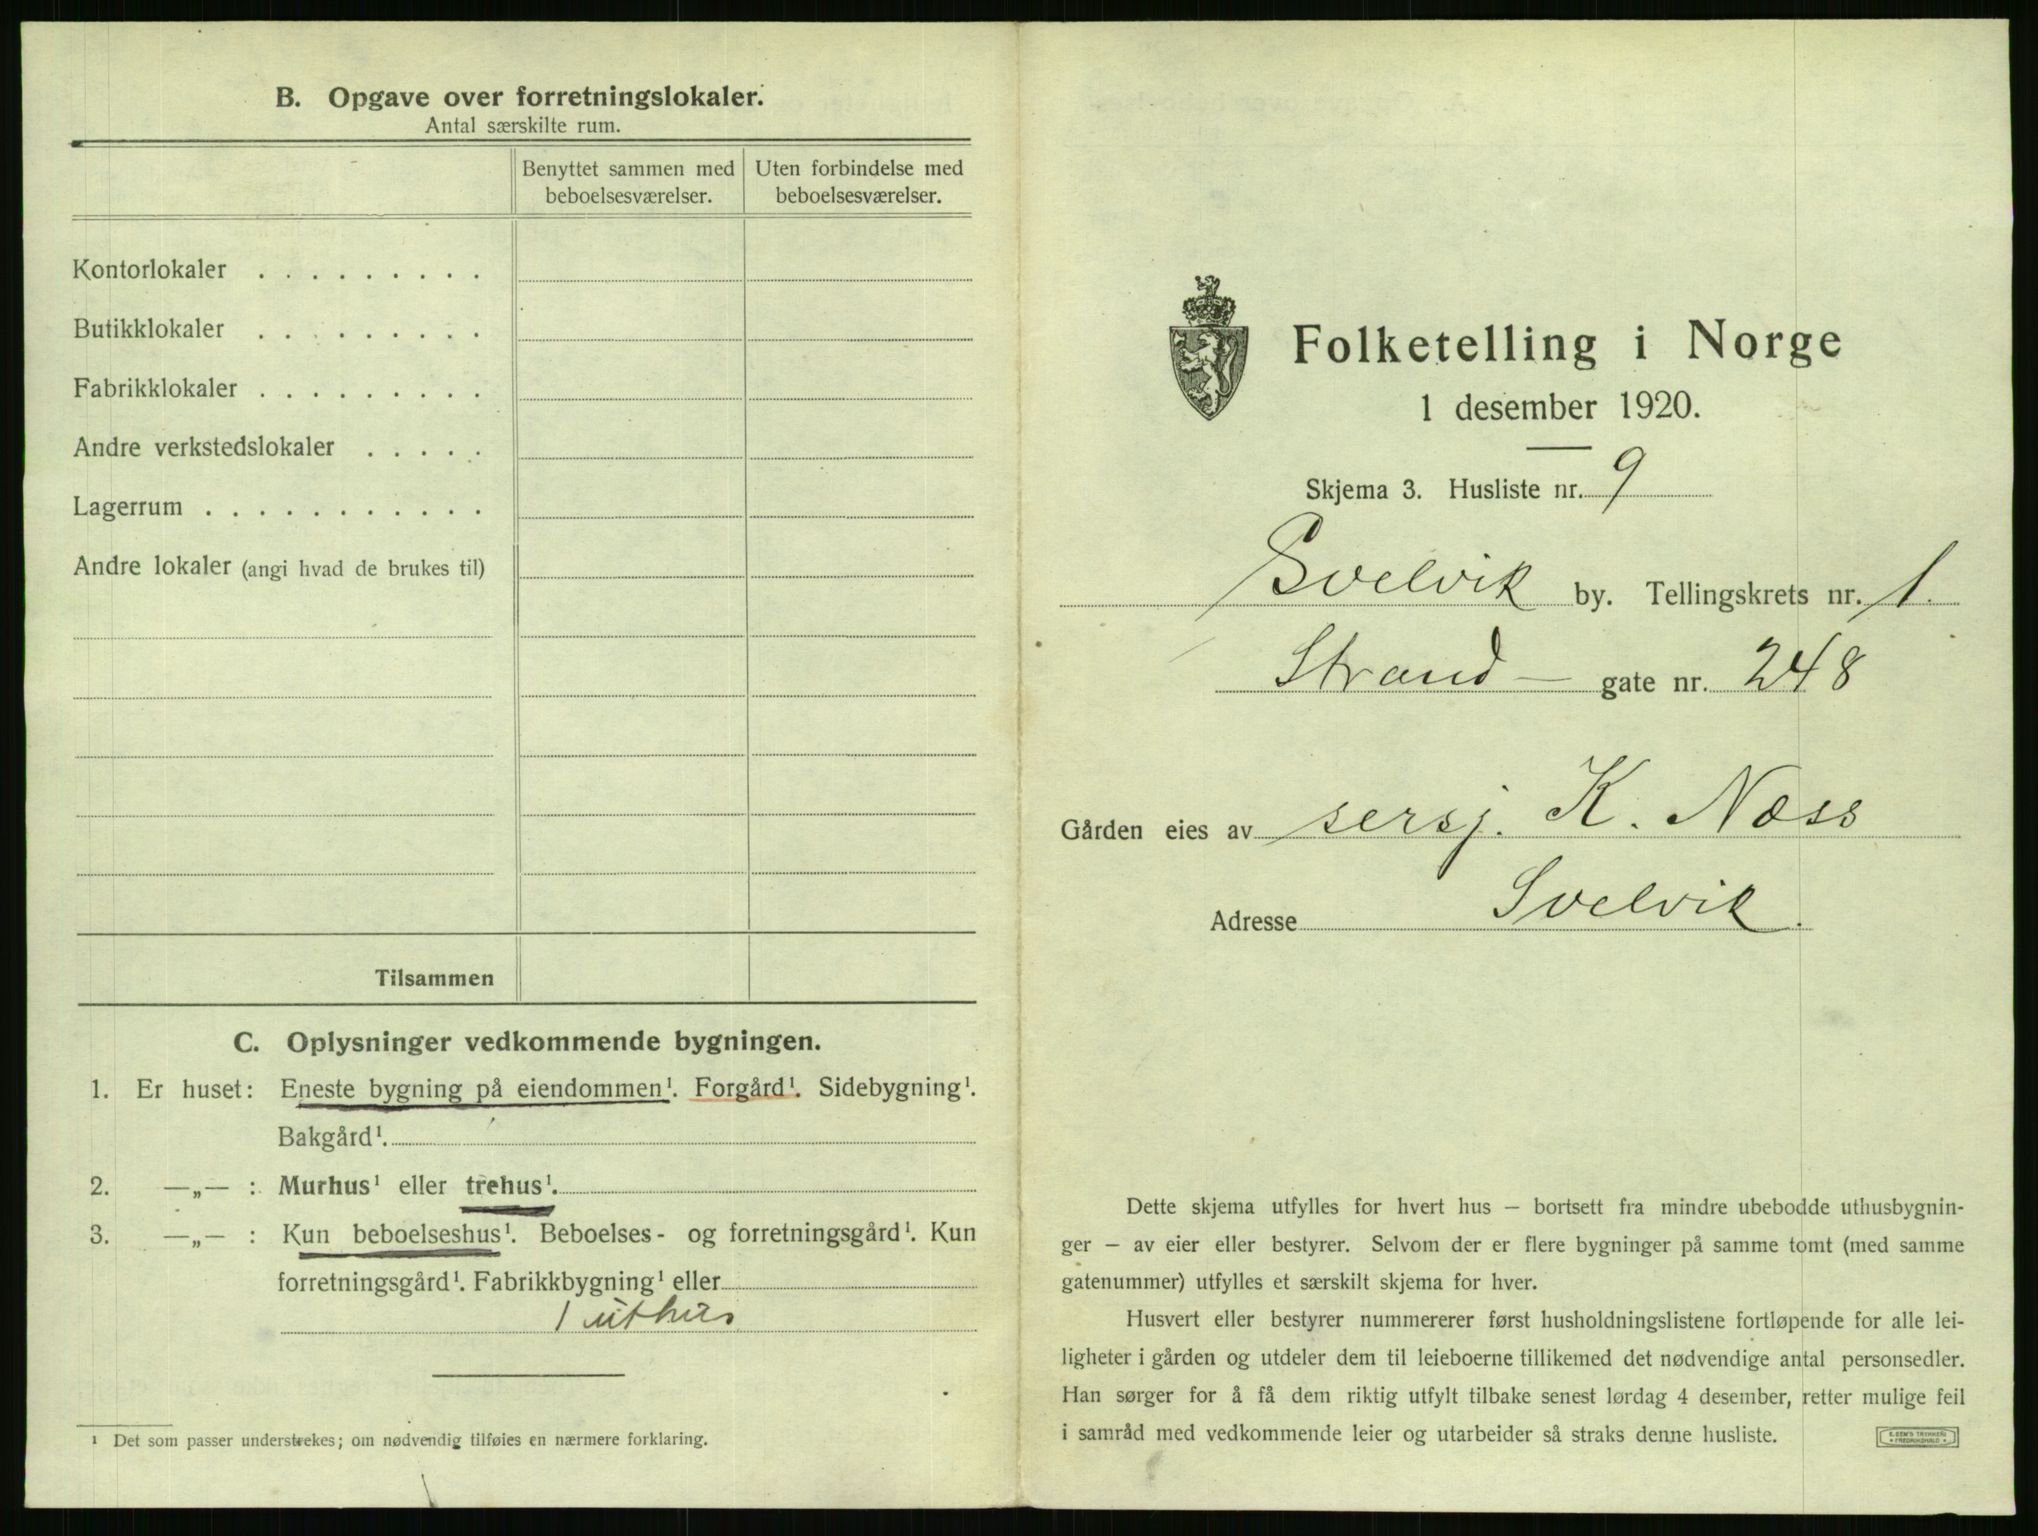 B. Opgave over forretningslokaler.
Antal særskilte rum.
Benyttet sammen med beboelsesværelser.
Uten forbindelse med beboelsesværelser.
Kontorlokaler . . . . . . . . .
Butikklokaler . . . . . . . . .
Fabrikklokaler . . . . . . . . .
Andre verkstedslokaler . . . . .
Lagerrum . . . . . . . . . . .
Andre lokaler (angi hvad de brukes til)
Tilsammen
C. Oplysninger vedkommende bygningen.
1. Er huset: Eneste bygning på eiendommen¹. Forgård¹. Sidebygning¹.
Bakgård¹.
2. —„— : Murhus¹ eller trehus¹.
3. —„— : Kun beboelseshus¹. Beboelses- og forretningsgård¹. Kun
forretningsgård¹. Fabrikkbygning¹ eller
1 uthus
¹ Det som passer understrekes; om nødvendig tilføies en nærmere forklaring.
Folketelling i Norge
1 desember 1920.
Skjema 3. Husliste nr. 9
Svelvik by. Tellingskrets nr. 1.
Strand — gate nr. 248
Gården eies av sersj. K. Næss
Adresse Svelvik.
Dette skjema utfylles for hvert hus — bortsett fra mindre ubebodde uthusbygnin-
ger — av eier eller bestyrer. Selvom der er flere bygninger på samme tomt (med samme
gatenummer) utfylles et særskilt skjema for hver.
Husvert eller bestyrer nummererer først husholdningslistene fortløpende for alle lei-
ligheter i gården og utdeler dem til leieboerne tillikemed det nødvendige antal personsedler.
Han sørger for å få dem riktig utfylt tilbake senest lørdag 4 desember, retter mulige feil
i samråd med vedkommende leier og utarbeider så straks denne husliste.
E. SEM'S TRYKKERI
FREDRIKSHALD